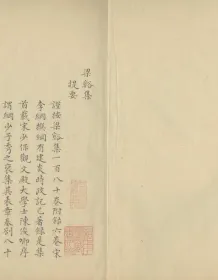 梁谿集
提要
謹按梁谿集一百八十卷附錄六卷宋
李綱撰綱有建炎時政記已著錄是集
首載宋少保觀文殿大學士陳俊卿序
謂綱少子秀之裒集其表章奏劄八十